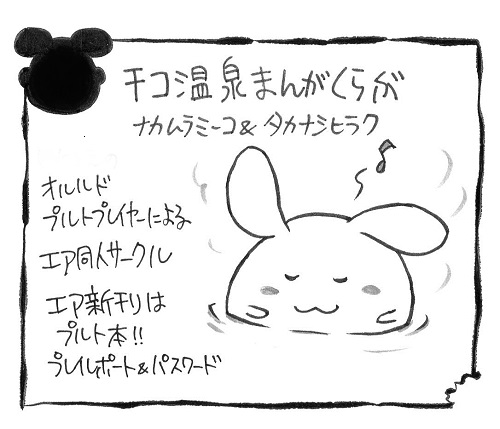 チコ温泉まんがくらぶ
ナカムラミーコ& タカナシヒラク
オルルド
プルトプレイヤーによる
エア同人サークル
エア新刊は
プルト本!!
プレイレポート&パスワード